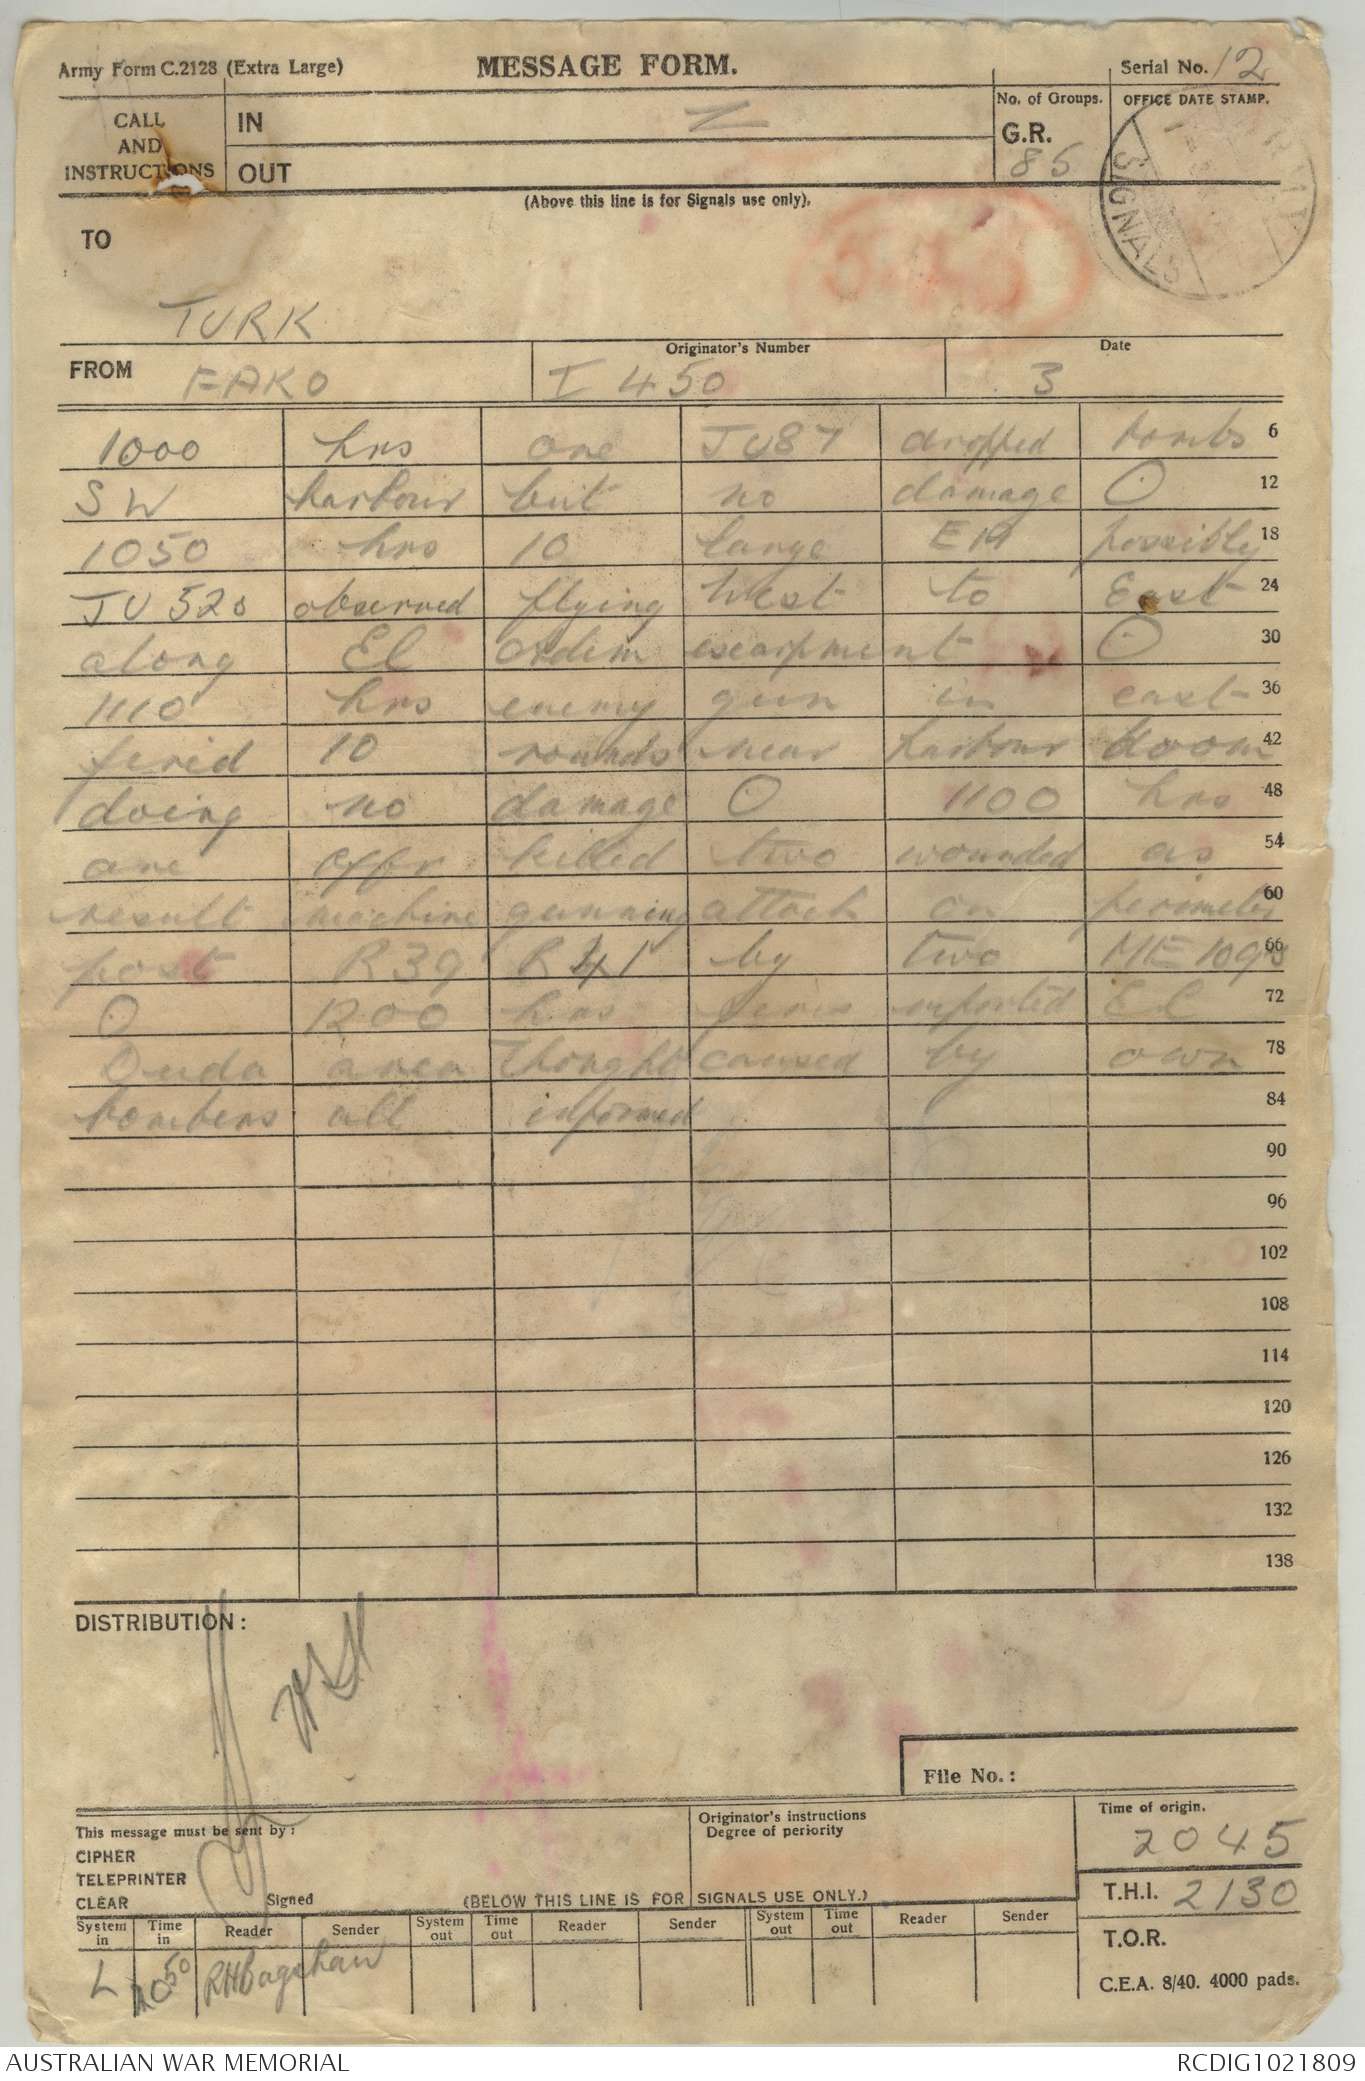 Army Form C.2128 (Extra Large) MESSAGE FORM. Serial No. 12
CALL AND INSTRUCTIONS IN No. of Groups. OFFICE DATE STAMP.
OUT G.R. 85
SIGNALS
(Above this line is for Signals use only).
TO
TURK
FROM FAKO Originator's Number I 450 Date 3
1000 hrs one JU87 dropped bombs 6
SW harbour but no damage O 12
1050 hrs 10 large EA possibly 18
JU 52s observed flying West to East 24
along El escarpment O 30
1110 hrs enemy gun in east 36
10 rounds near harbour boom 42
doing no damage O 1100 hrs 48
one offr killed two wounded as 54
result machine gunning attack on perimeter 60
post R39 R41 by two ME 109s 66
O 1200 hrs fires reported El 72
Duda area thought caused by own 78
bombers all informed 84
90
96
102
108
114
120
126
132
138
DISTRIBUTION:
File No.:
This message must be sent by:
CIPHER
TELEPRINTER
CLEAR Signed
Originator's instructions
Degree of periority
Time of origin.
2045
(BELOW THIS LINE IS FOR SIGNALS USE ONLY.)
T.H.I. 2130
System in Time in Reader Sender System out Time out Reader Sender System out Time out Reader Sender
T.O.R.
L 2050 RHBagshaw
C.E.A. 8/40. 4000 pads.
AUSTRALIAN WAR MEMORIAL RCDIG1021809